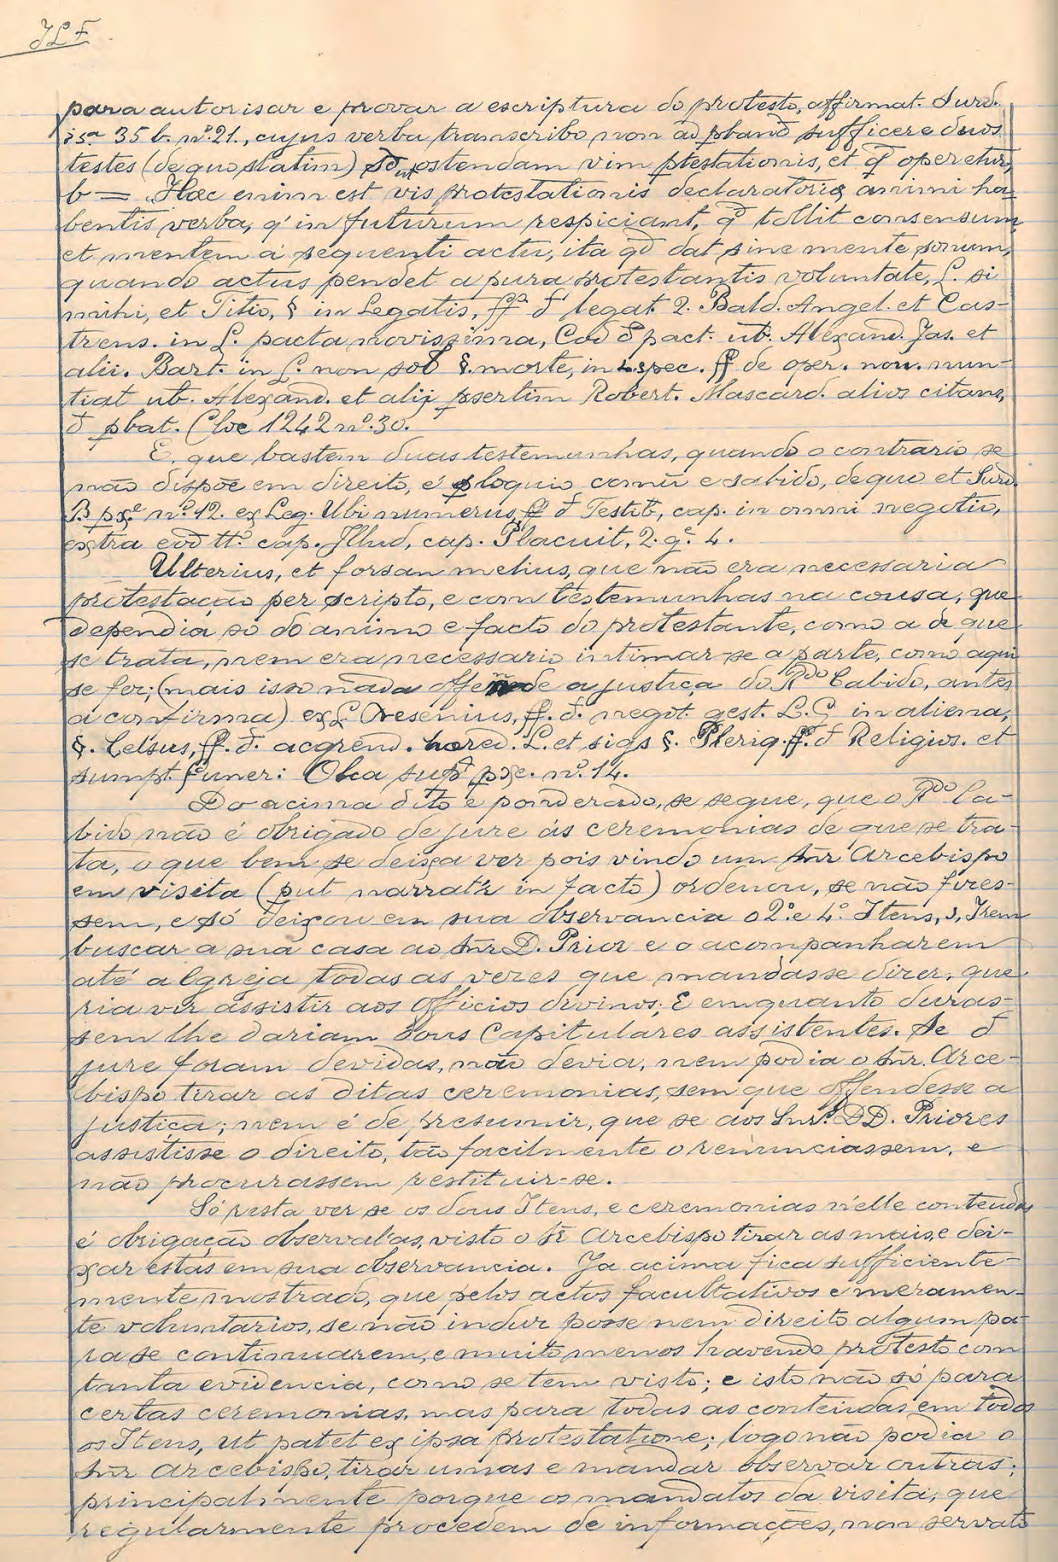 JLF
para autorisar e provar a escriptura do protesto, affirmat. Surd.
35 b. nº.21., cujus verba, transcribo non ad pband sufficere duos
testes (de quo statim) sed ut ostendam vim ptestationis, et qd operetur,
b = Hæc enim est vis protestationis declaratoriæ animi ha-
bentis verba, q' in futurum respiciant, qd tollit consensum,
et mentem á sequenti actu, ita qd dat sine mente sonum,
quando actus pendet a pura protestantis voluntate, L. si
mihi, et Titio, § in Legatis, ff. d legat. 2. Bald. Angel. et Cas-
trens. in L. pacta novissima, Cod d pact. ub. Alexand. Jas. et
alii. Bart. in L. non sol §. morte, in spec. ff de oper. nov. nun-
tiat ub. Alexand. et alij psertim Robert. Mascard. alios citans,
d pbat. Cloe 1242 nº.30.
E, que bastem duas testemunhas, quando o contrario se
não dispõe em direito, é ploquio comũ e sabido, de quo et Surd.
nº.12. ex Leg. Ubi numerus, ff d Testib, cap. in omni negotio,
extra eod ttº cap. Illud, cap. Placuit, 2. q.e 4.
Ulterius, et forsan melius, que não era necessaria
protestação per scripto, e com testemunhas na cousa, que
dependia só do animo e facto do protestante, como a de que
se trata, nem era necessario intimar-se a parte, como aqui
se fez; (mais isso nada offende a justiça do Rdo Cabido, antes
a confirma) ex L. Nesenius, ff. d. negot. gest. L. in aliena,
§. Celsus, ff. d. acqrend. hored. L. et siqs §. Pleriq. ff. d Religios. et
sumpt. funer: Olea supr pxe. nº.14.
Do acima dito e ponderado, se segue, que o Rdo Ca-
bido não é obrigado de jure ás ceremonias de que se tra-
ta, o que bem se deixa ver pois vindo um Snr Arcebispo
em visita (put narratr in facto) ordenou, se não fizes-
sem, e só deixou em sua observancia o 2º. e 4º. Itens, s, Irem
buscar a sua casa ao Snr D. Prior e o acompanharem
até a Igreja todas as vezes que mandasse dizer, que-
ria vir assistir aos Officios divinos; E emquanto duras-
sem lhe dariam dous Capitulares assistentes. Se d
jure foram devidas, não devia, nem podia o Snr. Arce-
bispo tirar as ditas ceremonias, sem que offendesse a
justiça; nem é de presumir, que se aos Snrs. DD. Priores
assistisse o direito, tão facilmente o renunciassem, e
não procurassem restituir-se.
Só resta ver se os dous Itens, e ceremonias n'elle contendas
é obrigação observal'as, visto o Sr Arcebispo tirar as mais, e dei-
xar estas em sua observancia. Ja acima fica sufficiente-
mente mostrado, que pelos actos facultativos e meramen-
te voluntarios, se não induz posse nem direito algum pa-
ra se continuarem, e muito menos havendo protesto com
tanta evidencia, como se tem visto; e isto não só para
certas ceremonias, mas para todas as conteudas em todos
os Itens, ut patet ex ipsa protestatione; logo não podia o
Snr Arcebispo, tirar umas e mandar observar outras;
principalmente porque os mandatos da visita, que
regularmente procedem de informações, non servato